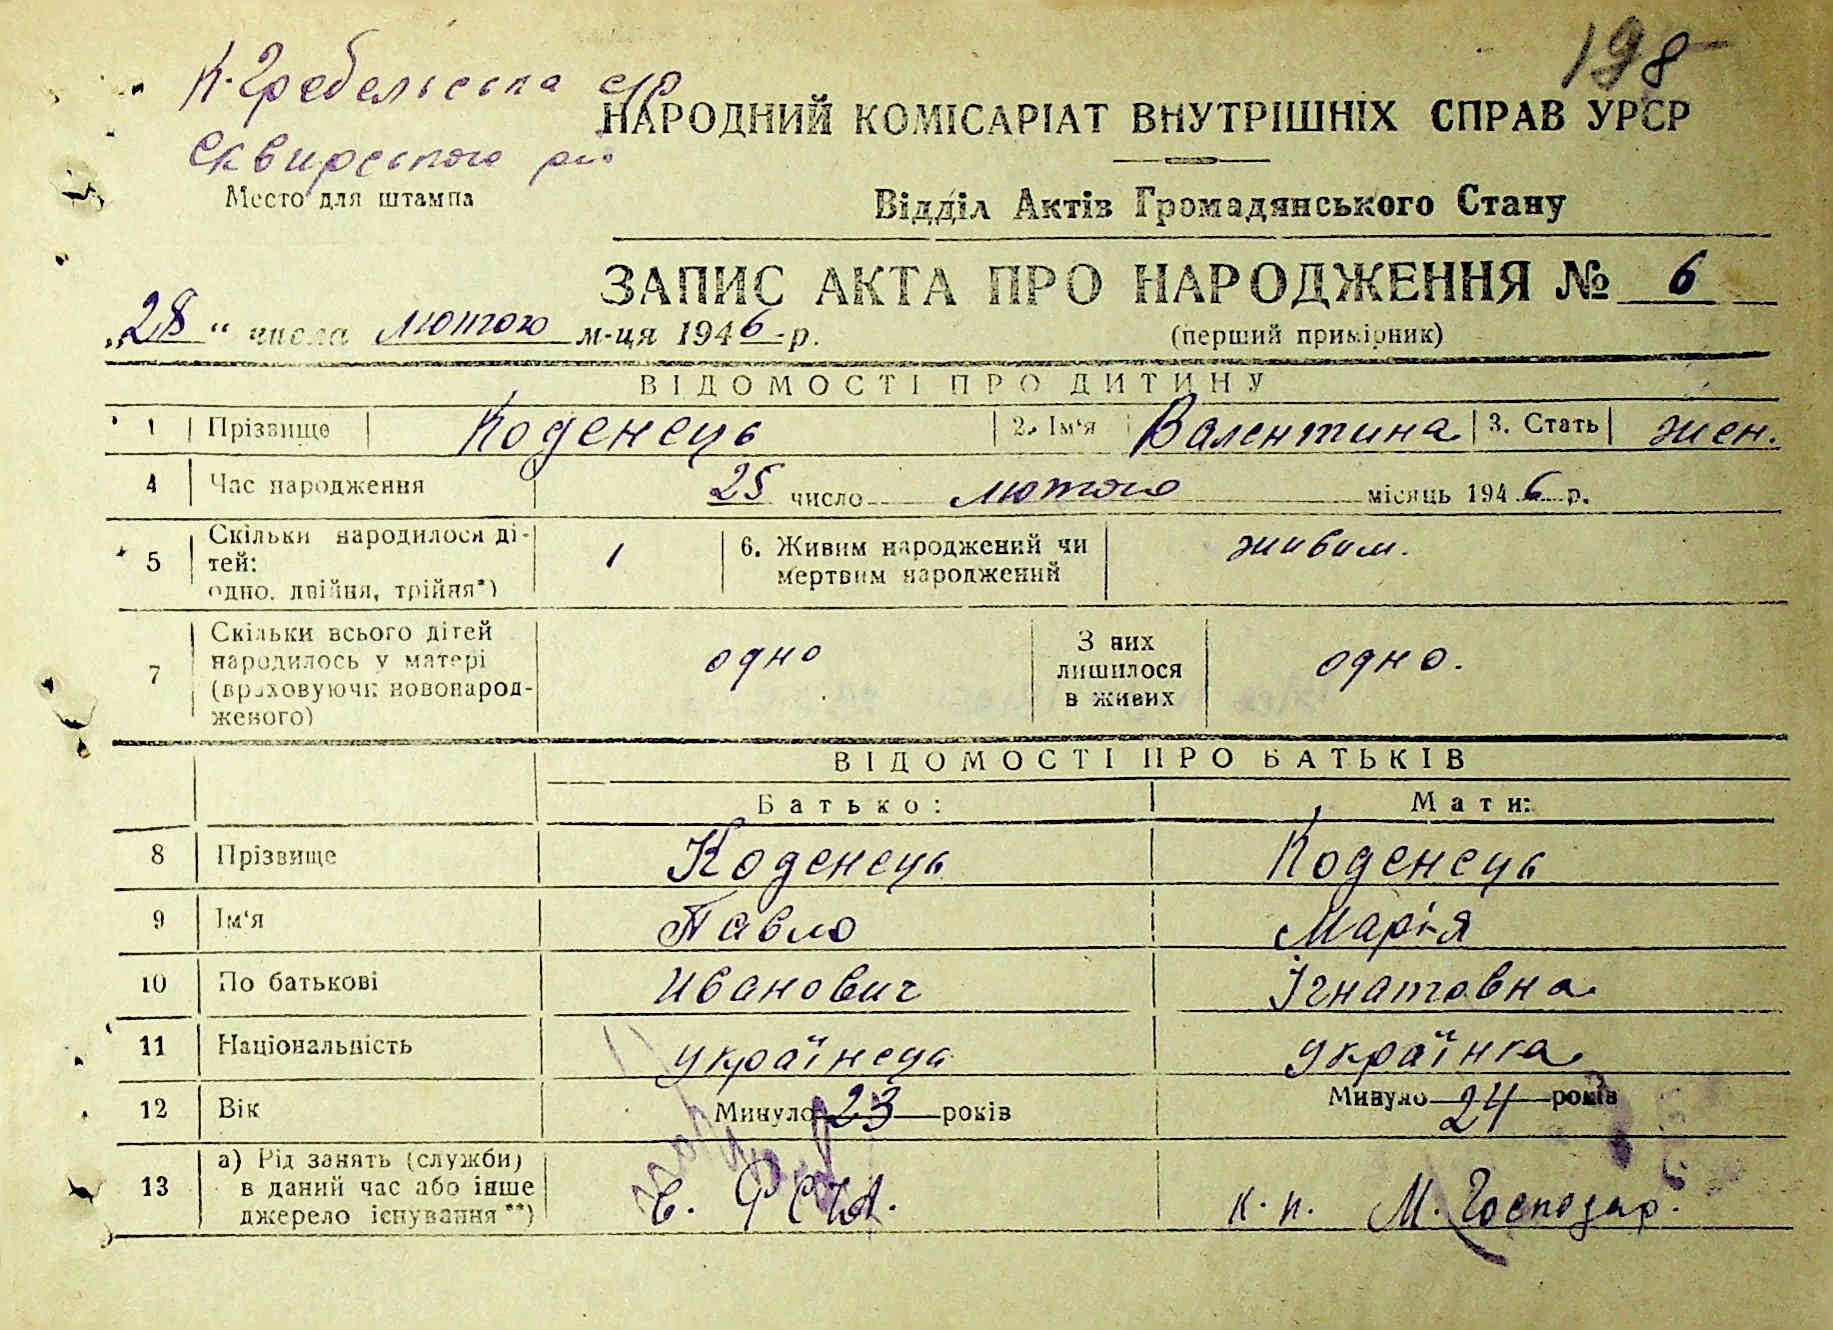 198
К-Гребельська с/р
НАРОДНИЙ КОМІСАРІАТ ВНУТРІШНІХ СПРАВ УРСР
Сквирського р-ну
Место для штампа
Відділ Актів Громадянського Стану
ЗАПИС АКТА ПРО НАРОДЖЕННЯ № 6
„28“ числа лютого м-ця 1946 р.
(перший примірник)
ВІДОМОСТІ ПРО ДИТИНУ
1 Прізвище Коденець 2. Ім'я Валентина 3. Стать жен.
4 Час народження 25 число лютого місяць 1946 р.
5 Скільки народилося ді-
тей:
одно, двійня, трійня*) 1
6. Живим народжений чи
мертвим народжений живим.
7 Скільки всього дітей
народилось у матері
(враховуючи новонарод-
женого) одно
З них
лишилося
в живих одно.
ВІДОМОСТІ ПРО БАТЬКІВ
Батько: Мати:
8 Прізвище Коденець Коденець
9 Ім'я Павло Марія
10 По батькові Иванович Ігнатовна
11 Національність українець українка
12 Вік Минуло 23 років Минуло 24 років
13 а) Рід занять (служби)
в даний час або інше
джерело існування**) к. н. М. Господар.